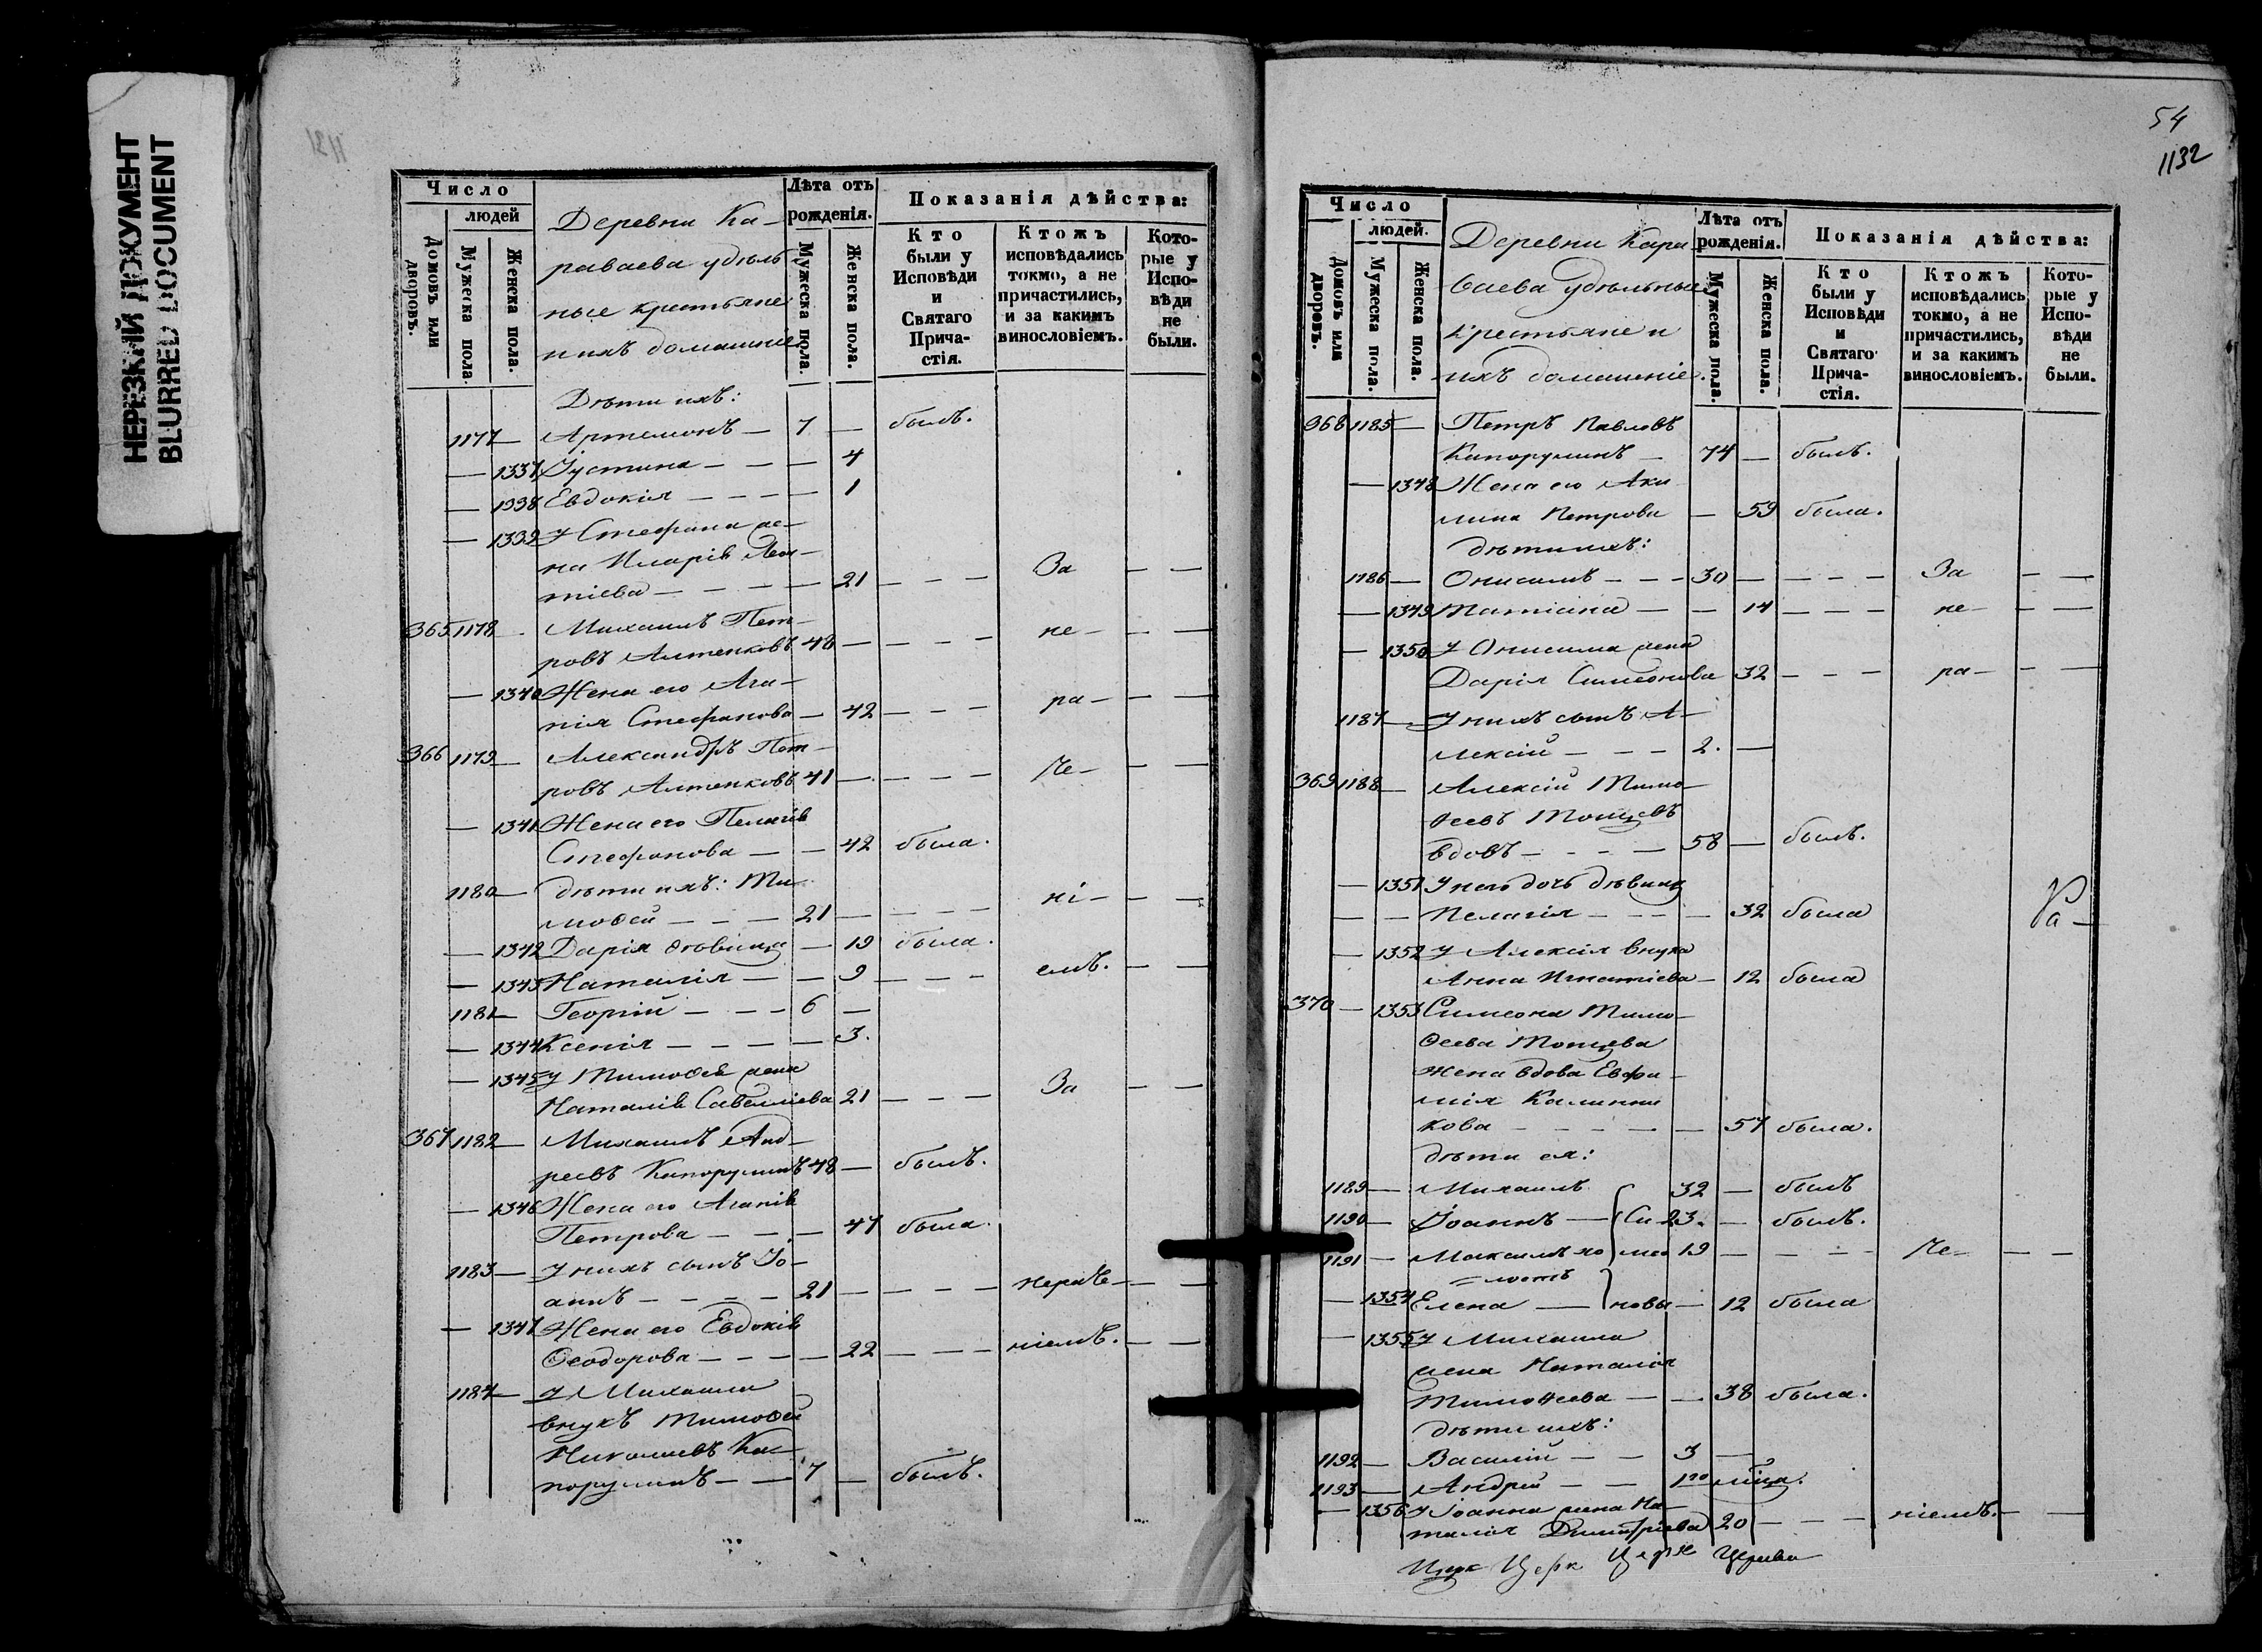 НЕРЕЗКИЙ ДОКУМЕНТ
BLURRED DOCUMENT
1131
Число
людей
Домовъ или дворовъ.
Мужеска пола.
Женска пола.
Деревни Ка-
раваева удѣль
ные крестьяне
и ихъ домашніе
Лѣта отъ рожденія.
Мужеска пола.
Женска пола.
Показанія дѣйства:
Кто были у Исповѣди и Святаго Прича-стія.
Ктожъ исповѣдались токмо, а не причастились, и за какимъ винословіемъ.
Кото-рые у Испо-вѣди не были.
Дѣти ихъ:
1177 — Артемонъ — 7 — былъ.
— 1337 Іустина — — — 4
— 1338 Евдокія — — — — 1
— 1339 У Стефана же-
на Иларія Леон-
тіева — — — — 21 — — — За — —
365 1178 — Михаилъ Пет-
ровъ Алтенковъ 48 — — — — не — — —
— 1340 Жена его Ага-
пія Стефанова — 42 — — — ра — — —
366 1179 — Александръ Пет-
ровъ Алтенковъ 41 — — — — че — — —
— 1341 Жена его Пелагія
Стефанова — — 42 была.
1180 — дѣти ихъ: Ти-
моѳей — — — 21 — — — — ні — — —
— 1342 Дарія дѣвица — 19 была.
— 1343 Наталія — — 9 — — — емъ. — —
1181 — Георгій — — — 6 —
— 1344 Ксенія — — — — 3.
— 1345 У Тимоѳея жена
Наталія Савеліева 21 — — — За — —
367 1182 — Михаилъ Анд-
реевъ Капорулинъ 48 — былъ.
— 1346 Жена его Агапія
Петрова — — — 47 была.
1183 — У нихъ сынъ Іо-
аннъ — — — — 21 — — — — нераче — — —
— 1347 Жена его Евдокія
Ѳеодорова — — — — 22 — — — ніемъ. — —
1184 — У Михаила
внукъ Тимоѳей
Николаевъ Ка-
порулинъ — — 7 — былъ.
54
1132
Число
людей.
Домовъ или дворовъ.
Мужеска пола.
Женска пола.
Деревни Кара-
ваева Удѣльные
крестьяне и
ихъ домашніе.
Лѣта отъ рожденія.
Мужеска пола.
Женска пола.
Показанія дѣйства:
Кто были у Исповѣди и Святаго Прича-стія.
Ктожъ исповѣдались токмо, а не причастились, и за какимъ винословіемъ.
Кото-рые у Испо-вѣди не были.
368 1185 — Петръ Павловъ
Капорулинъ — 74 — былъ.
— 1348 Жена его Аки-
лина Петрова — 59 была.
дѣти ихъ:
1186 — Онисимъ — — — 30 — — — — За — —
— 1349 Татіана — — 14 — — — не — — —
— 1350 У Онисима жена
Дарія Симеонова 32 — — — ра — — —
1187 — У нихъ сынъ А-
лексій — — — 2. —
369 1188 — Алексій Тимо-
ѳеевъ Топцевъ
вдовъ — — — — 58 — былъ.
— 1351 У него дочь дѣвица
— — Пелагія — — — — 32 была
Ра —
— 1352 У Алексія внука
Анна Игнатіева — 12 была
370 — 1353 Симеона Тимо-
ѳеева Топцева
жена вдова Евфи-
мія Калинни
кова — — — — — 57 была.
дѣти ея:
1189 — Михаилъ 32 — былъ
1190 — Іоаннъ — Си 23. — былъ.
1191 — Максимъ хо мео 19 — — — — Че — — —
= лостъ
— 1354 Елена — новы — 12 была
— 1355 У Михаила
жена Наталія
Тимоѳеева — — 38 была.
дѣти ихъ:
1192 — Василій — — 3 —
1193 — Андрей — — 1го мѣца.
— 1356 У Іоанна жена На-
талія Димитріева 20 — — — ніемъ. — —
Церк Церк Церкв